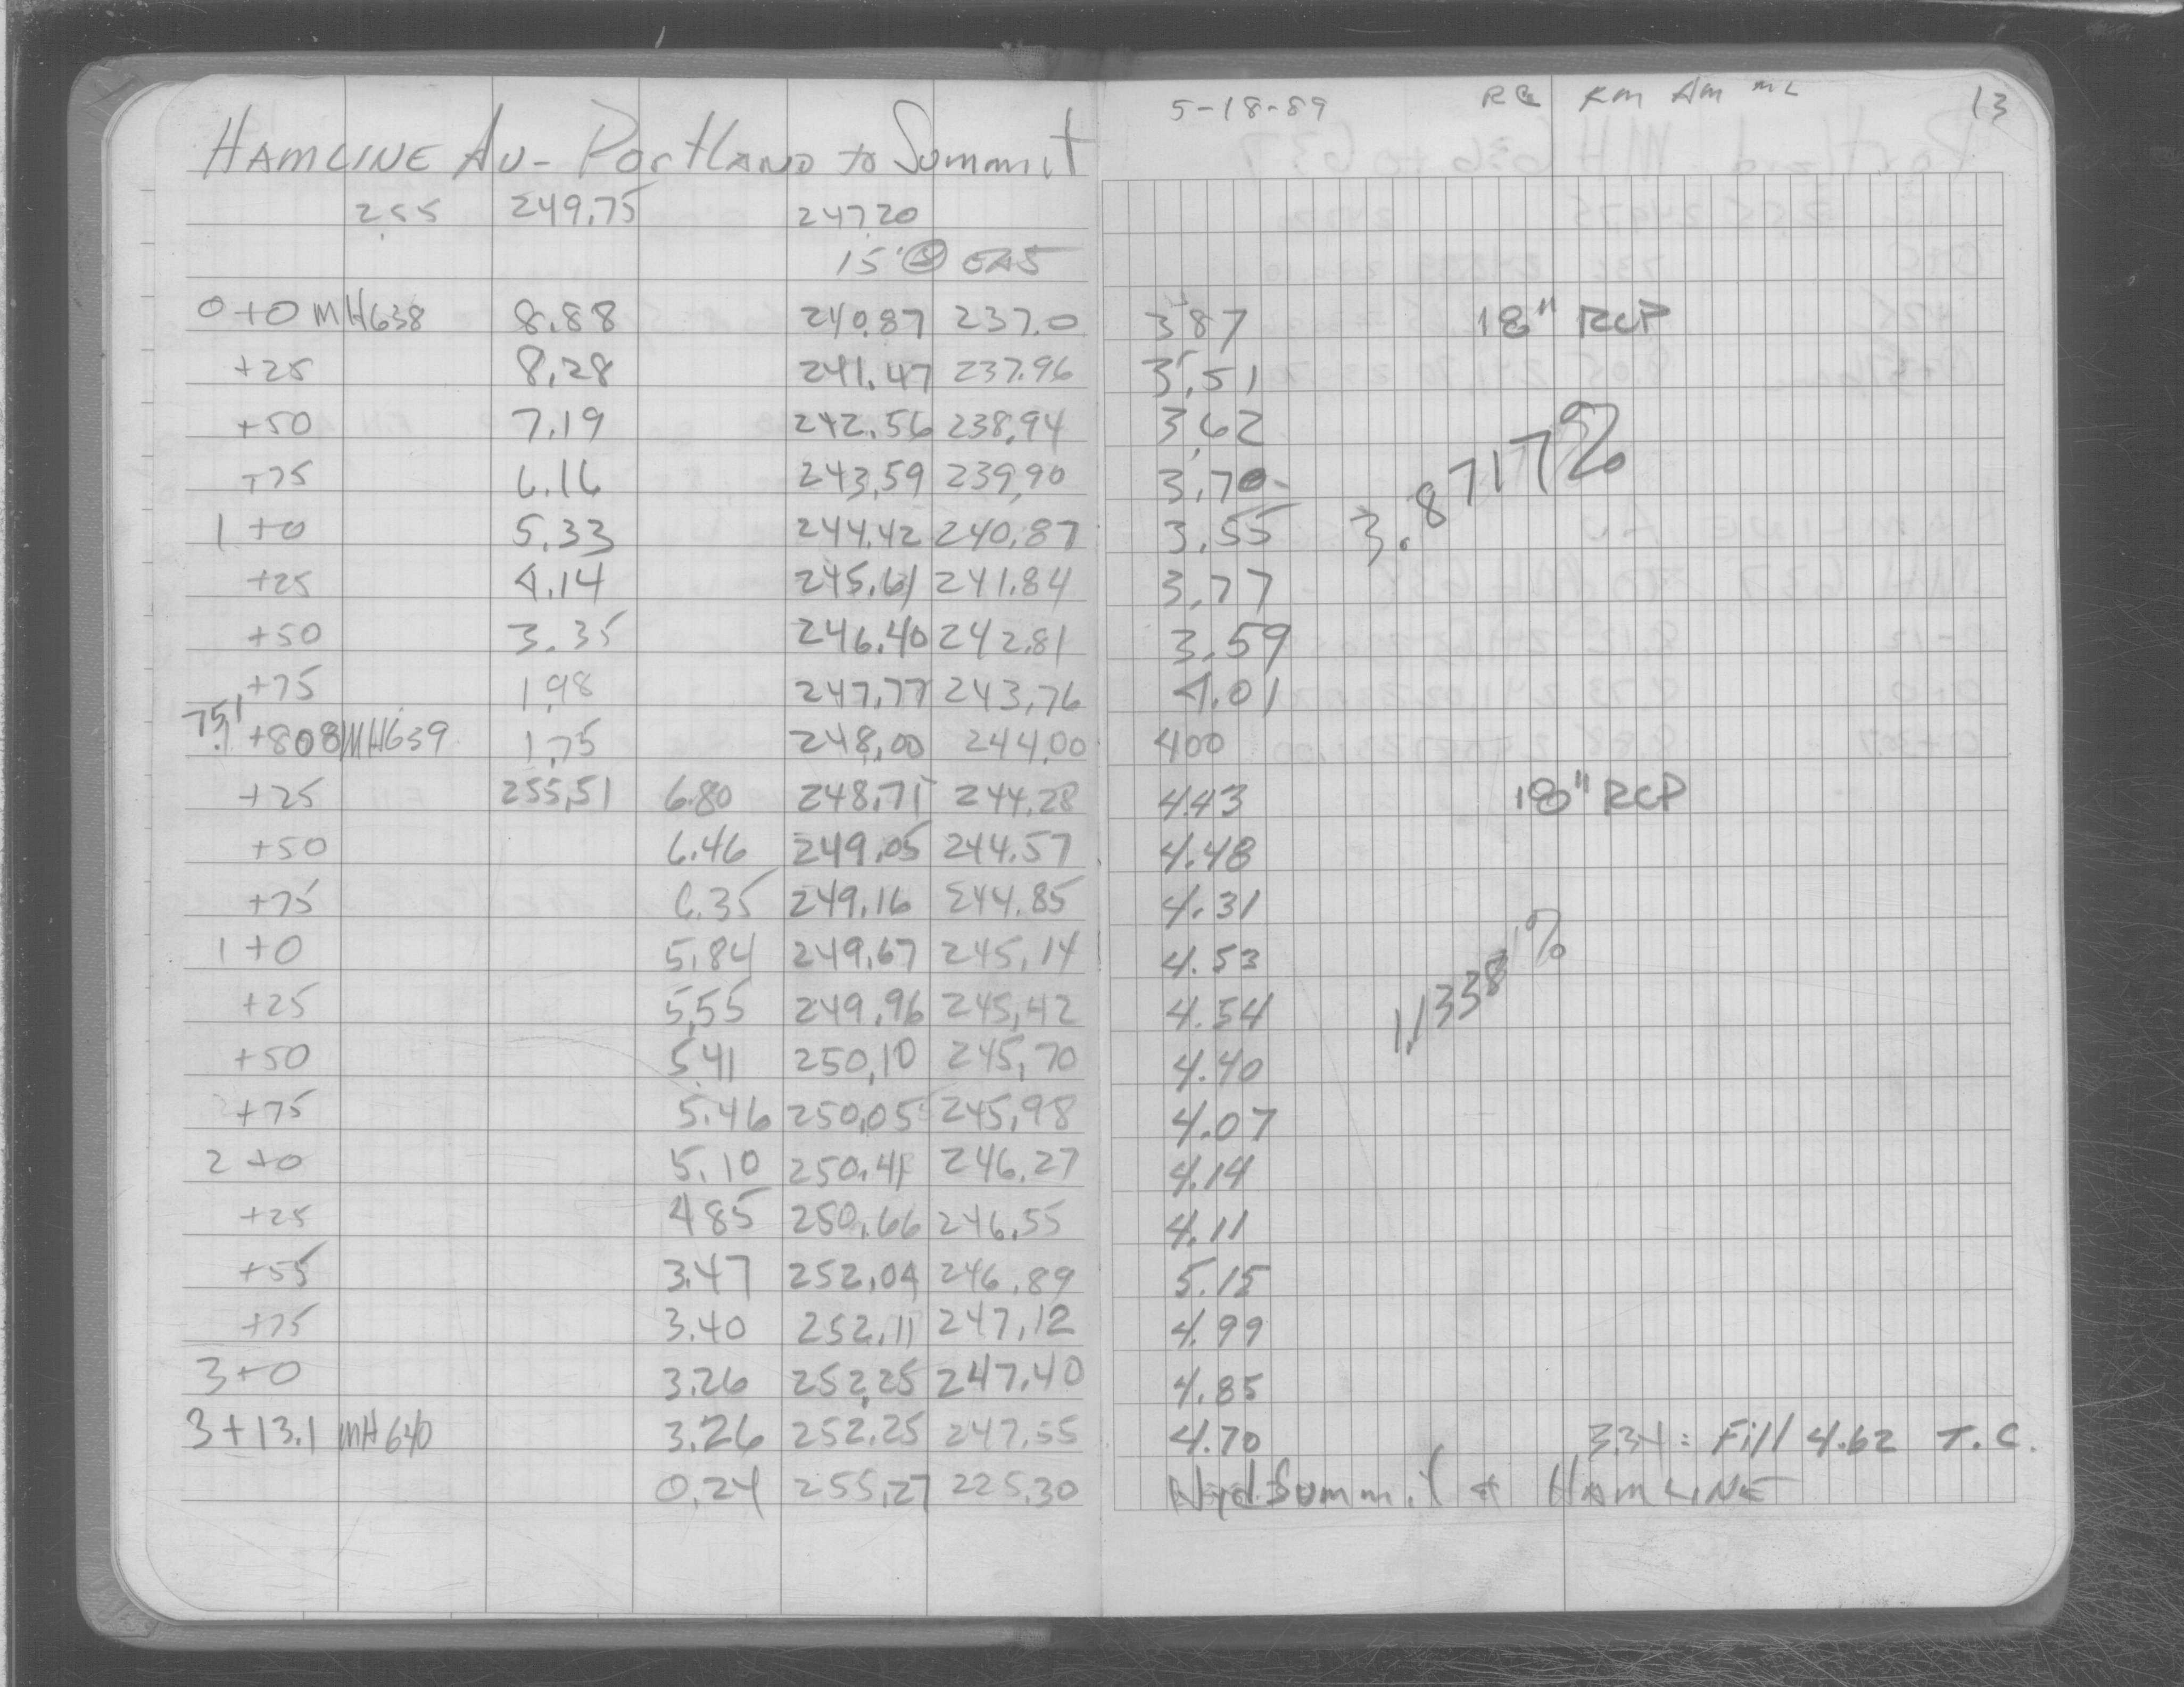 5-18-89 RQ KM AM ML 13
HAMLINE AV- Portland to Summit
2.55 249.75 247.20
15' @ EAS
0+0 MH638 8.88 240.87 237.0 3.87 18" RCP
+25 8.28 241.47 237.96 3.51
+50 7.19 242.56 238.94 3.62
+75 6.16 243.59 239.90 3.70 3.8717%
1+0 5.33 244.42 240.87 3.55
+25 4.14 245.61 241.84 3.77
+50 3.35 246.40 242.81 3.59
+75 1.98 247.77 243.76 4.01
+808 MH639 1.75 248.00 244.00 400
+25 255.51 6.80 248.71 244.28 4.43 18" RCP
+50 6.46 249.05 244.57 4.48
+75 6.35 249.16 244.85 4.31
1+0 5.84 249.67 245.14 4.53
+25 5.55 249.96 245.42 4.54 1.1338%
+50 5.41 250.10 245.70 4.40
+75 5.46 250.05 245.98 4.07
2+0 5.10 250.41 246.27 4.14
+25 485 250.66 246.55 4.11
+55 3.47 252.04 246.89 5.15
+75 3.40 252.11 247.12 4.99
3+0 3.26 252.25 247.40 4.85
3+13.1 MH640 3.26 252.25 247.55 4.70 : Fill 4.62 T.C.
0.24 255.27 225.30 Hyd. Summit & HAMLINE